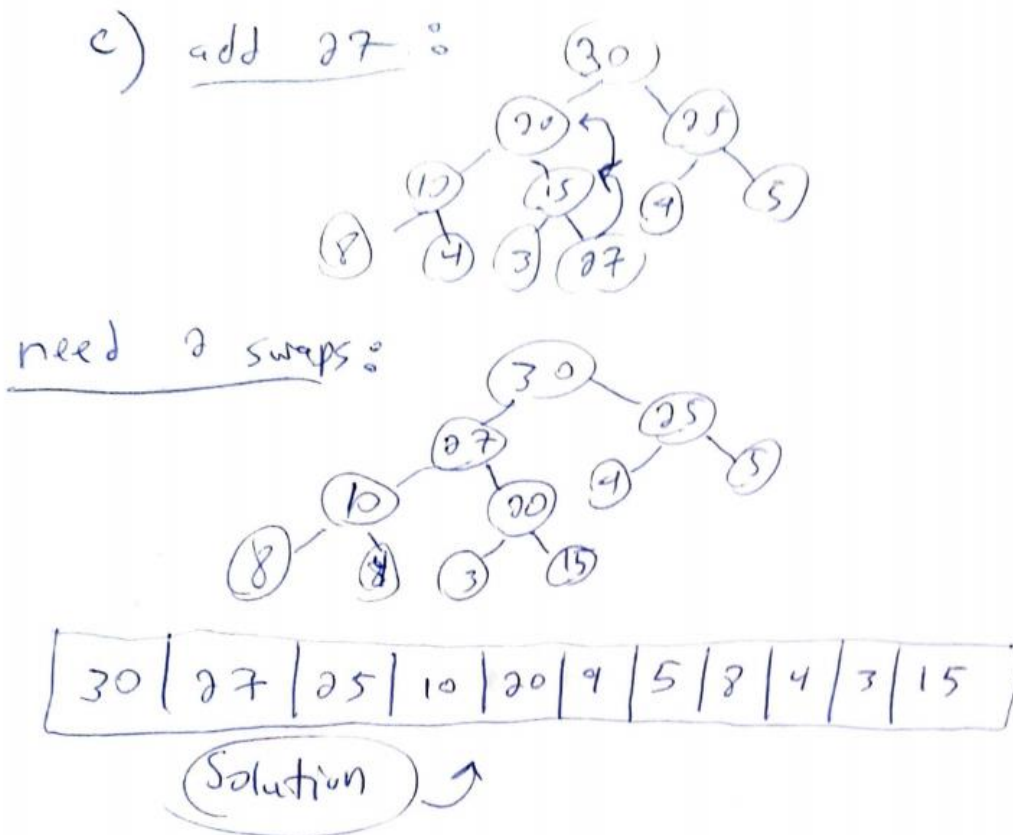 c) add 27 :
30
20 25
10 15 9 5
8 4 3 27
need 2 swaps:
30
27 25
10 20 9 5
8 4 3 15
30 | 27 | 25 | 10 | 20 | 9 | 5 | 8 | 4 | 3 | 15
Solution